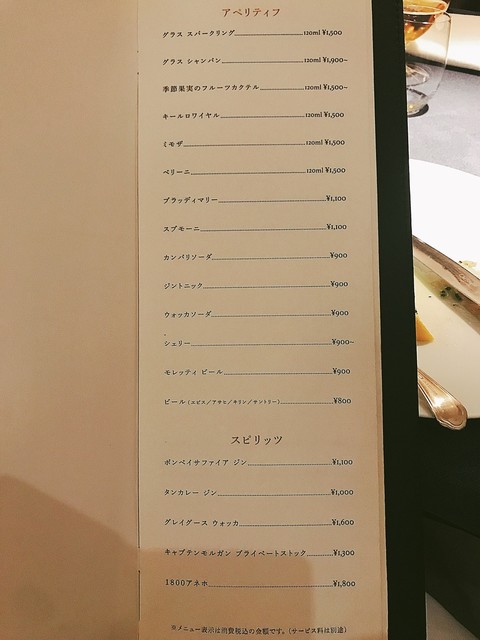 アペリティフ
グラス スパークリング 120ml ¥1,500
グラス シャンパン 120ml ¥1,900~
季節果実のフルーツカクテル 120ml ¥1,500~
キールロワイヤル 120ml ¥1,500
ミモザ 120ml ¥1,500
ベリーニ 120ml ¥1,500
ブラッディマリー ¥1,100
スプモーニ ¥1,100
カンパリソーダ ¥900
ジントニック ¥900
ウォッカソーダ ¥900
シェリー ¥900~
モレッティ ビール ¥900
ビール (エビス/アサヒ/キリン/サントリー) ¥800
スピリッツ
ボンベイサファイア ジン ¥1,100
タンカレー ジン ¥1,000
グレイグース ウォッカ ¥1,600
キャプテンモルガン プライベートストック ¥1,300
1800アネホ ¥1,800
※メニュー表示は消費税込の金額です。(サービス料は別途)